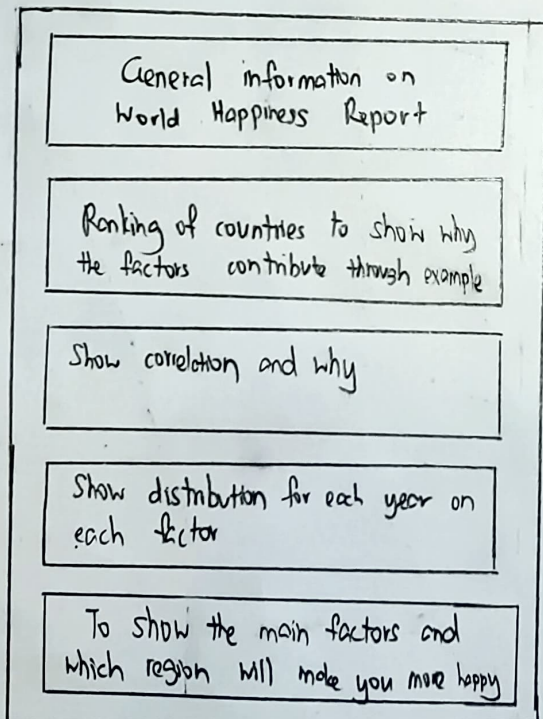 General information on
World Happiness Report
Ranking of countries to show why
the factors contribute through example
Show correlation and why
Show distribution for each year on
each factor
To show the main factors and
which region will make you more happy